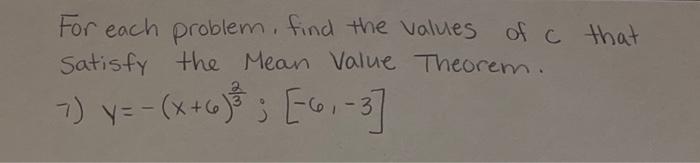 For each problem, find the values of c that
Satisfy the Mean Value Theorem.
7) y=-(x+6)^(2/3) ; [-6,-3]